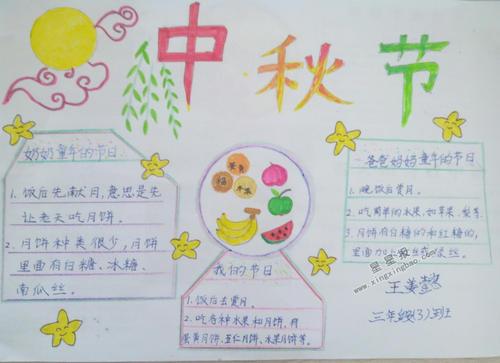 中秋节
奶奶童年的节日
1. 饭后先献月,意思是先
让老天吃月饼。
2. 月饼种类很少,月饼
里面有白糖、冰糖、
南瓜丝。
蛋黄
五仁
水果
我的节日
1. 饭后去赏月。
2. 吃各种水果和月饼,有
蛋黄月饼、五仁月饼、水果月饼等。
爸爸妈妈童年的节日
1. 晚饭后赏月。
2. 吃简单的水果,如苹果、梨等
3. 月饼有白糖的和红糖的,
里面加上
丝。
星星报
www.xingxingbao.com
三年级(3)班